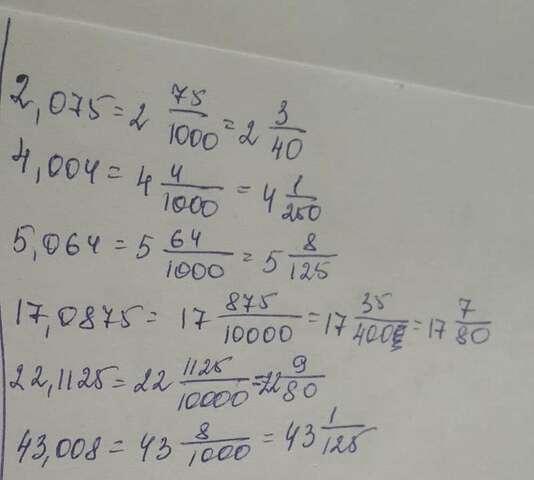 2,075 = 2 75/1000 = 2 3/40
4,004 = 4 4/1000 = 4 1/250
5,064 = 5 64/1000 = 5 8/125
17,0875 = 17 875/10000 = 17 35/400 = 17 7/80
22,1125 = 22 1125/10000 = 22 9/80
43,008 = 43 8/1000 = 43 1/125